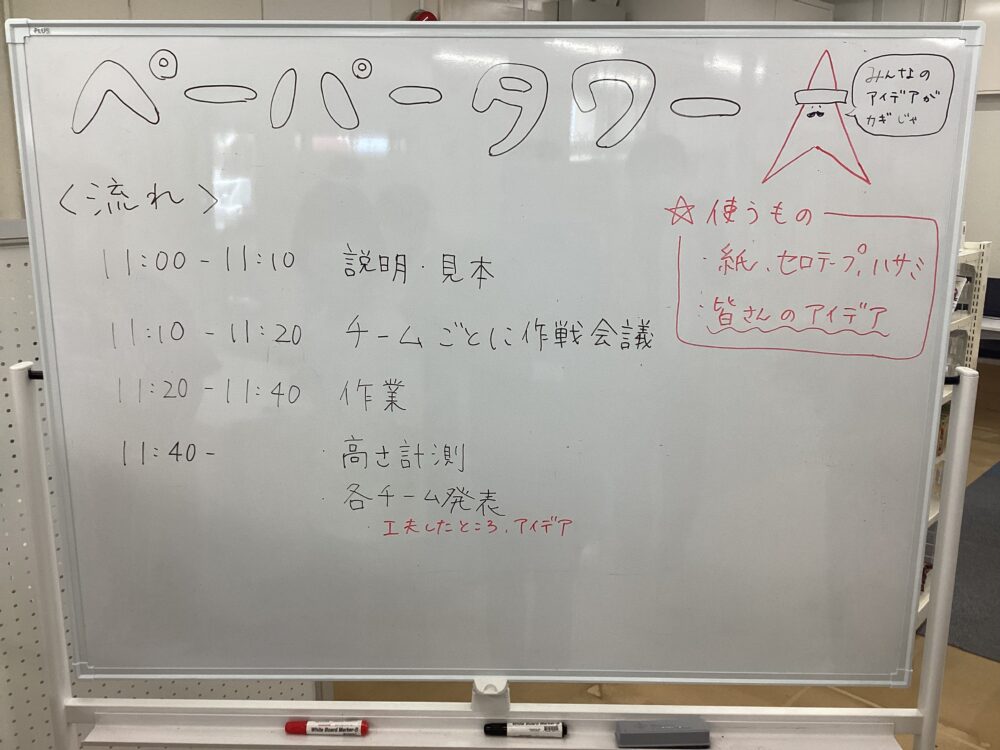 PLUS
ペーパータワー
みんなの
アイデアが
カギじゃ
<流れ>
11:00 - 11:10 説明・見本
11:10 - 11:20 チームごとに作戦会議
11:20 - 11:40 作業
11:40 - ・高さ計測
・各チーム発表
・工夫したところ、アイデア
☆使うもの
・紙、セロテープ、ハサミ
・皆さんのアイデア
White Board Marker
White Board Marker